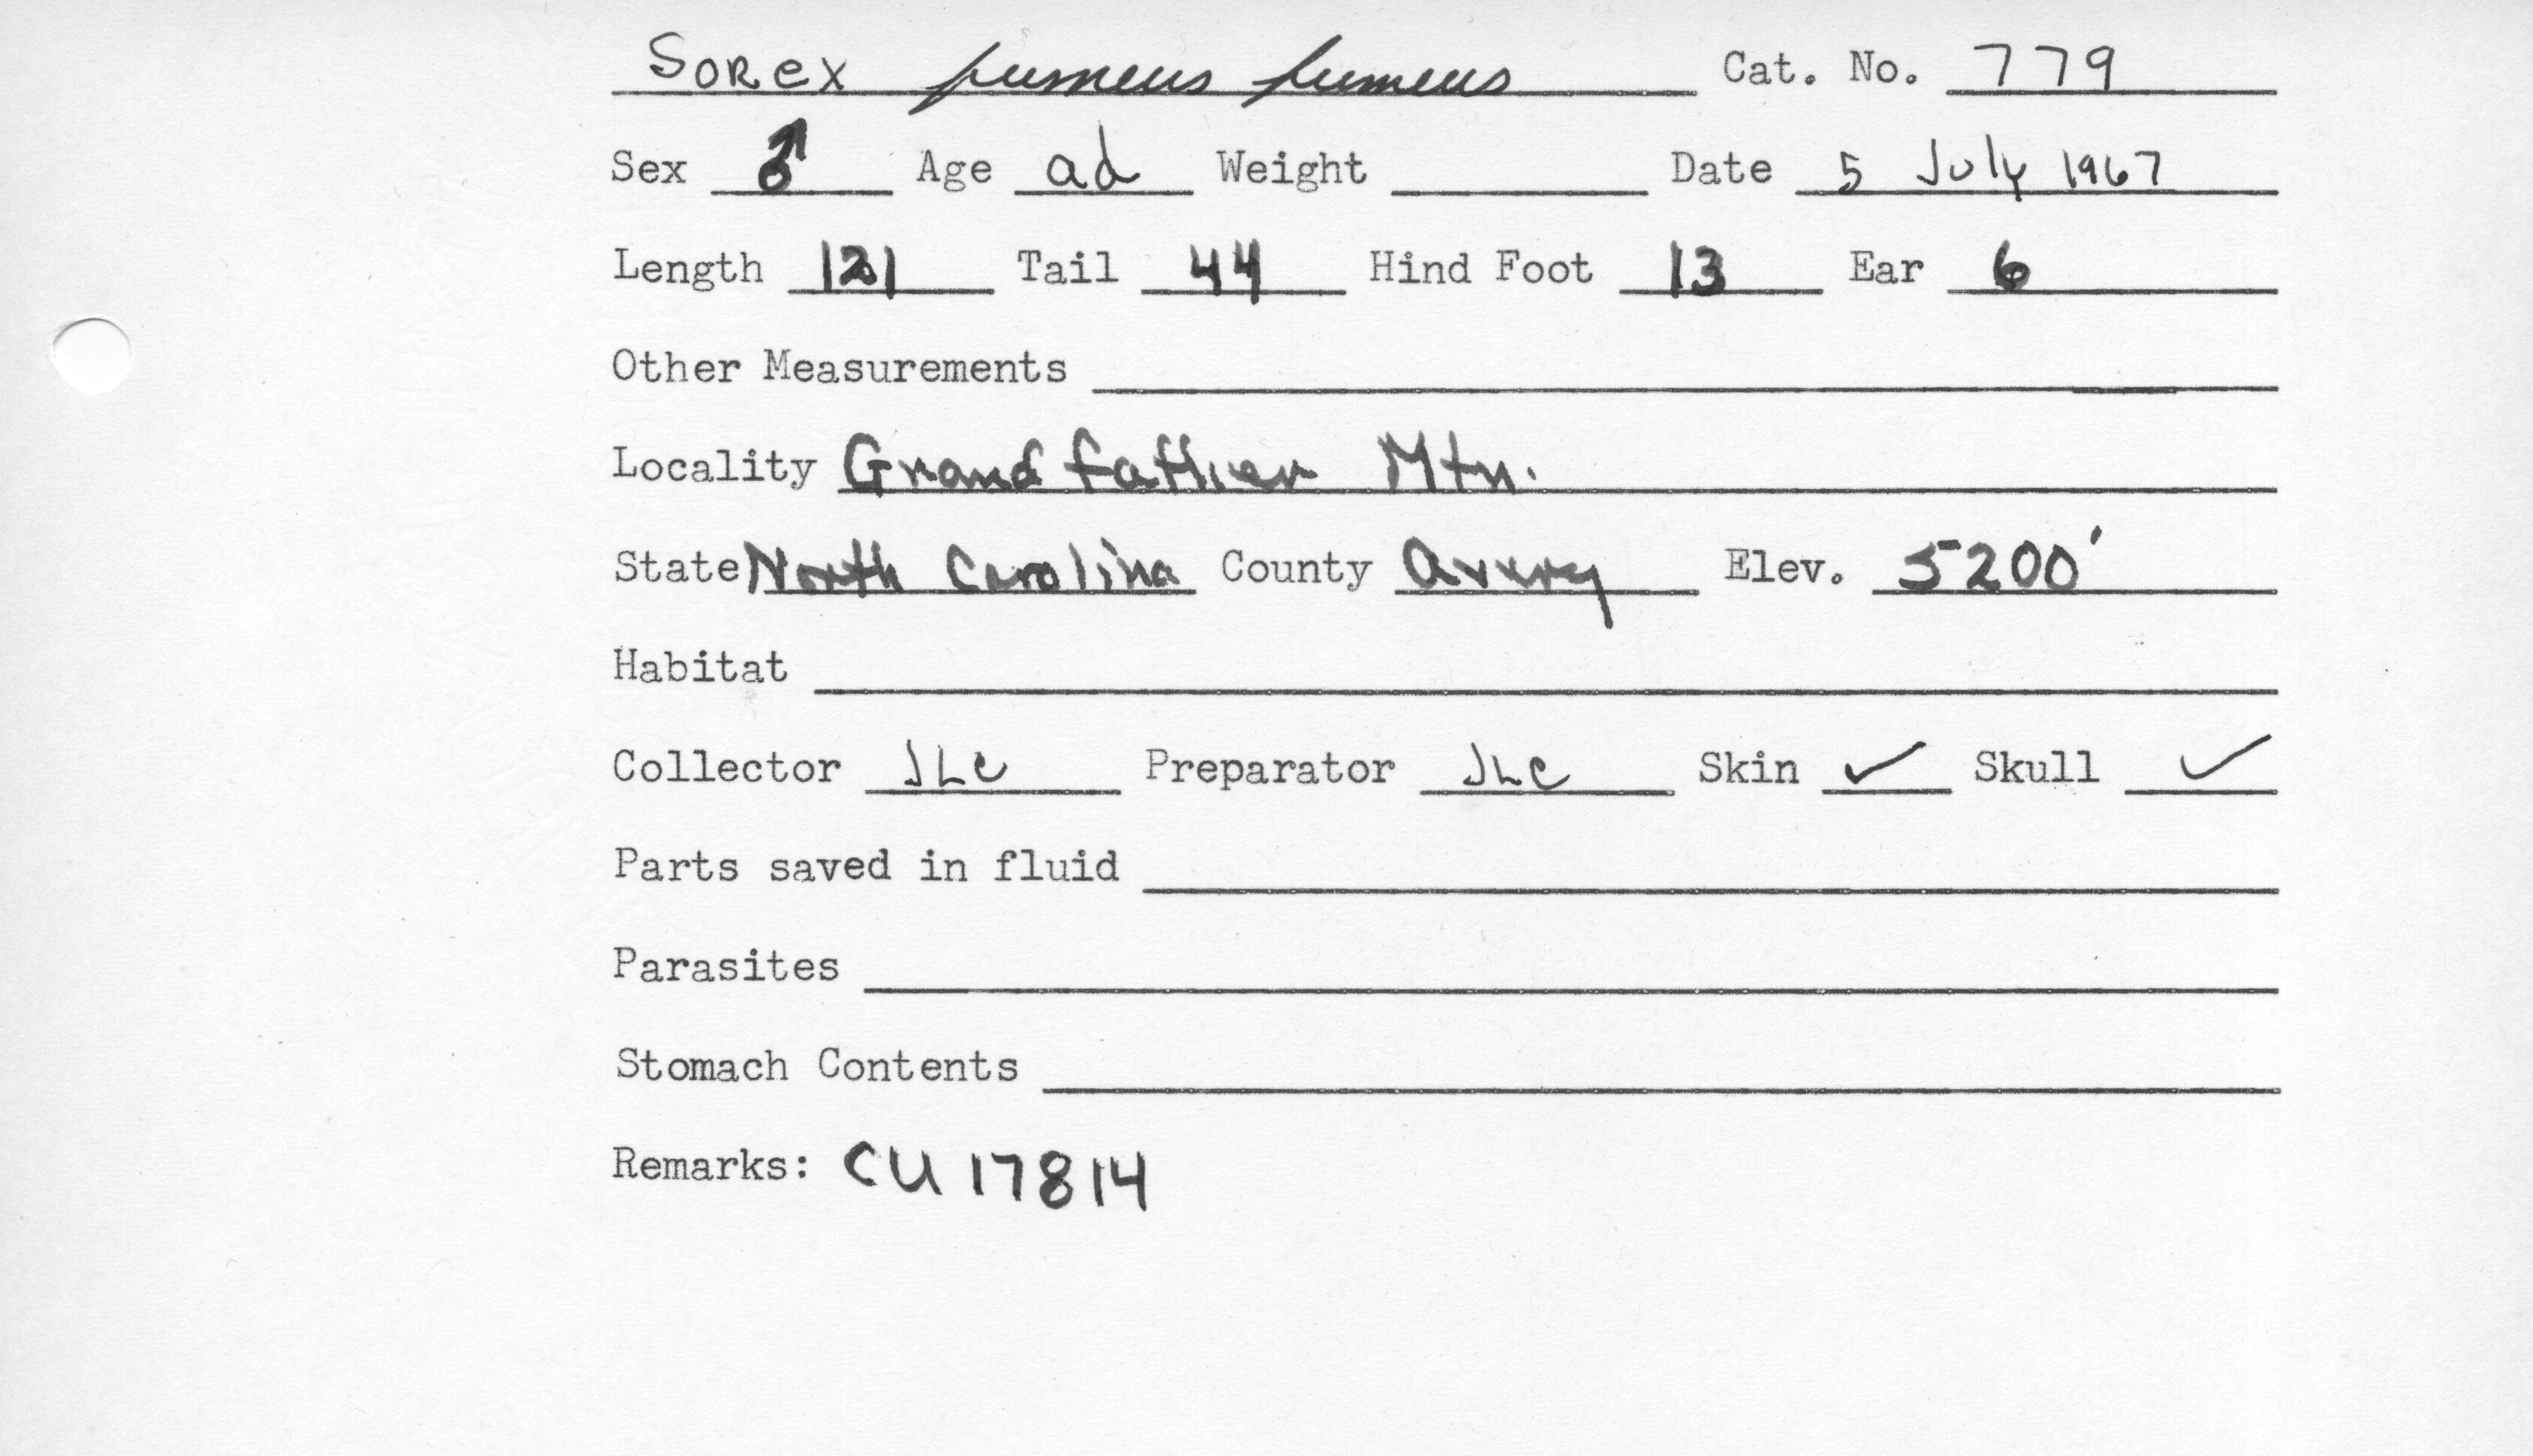 Sorex fumeus fumeus Cat. No. 779
Sex ♂ Age ad Weight Date 5 July 1967
Length 121 Tail 44 Hind Foot 13 Ear 6
Other Measurements
Locality Grandfather Mtn.
State North Carolina County Avery Elev. 5200'
Habitat
Collector JLC Preparator JLC Skin ✓ Skull ✓
Parts saved in fluid
Parasites
Stomach Contents
Remarks: CU 17814